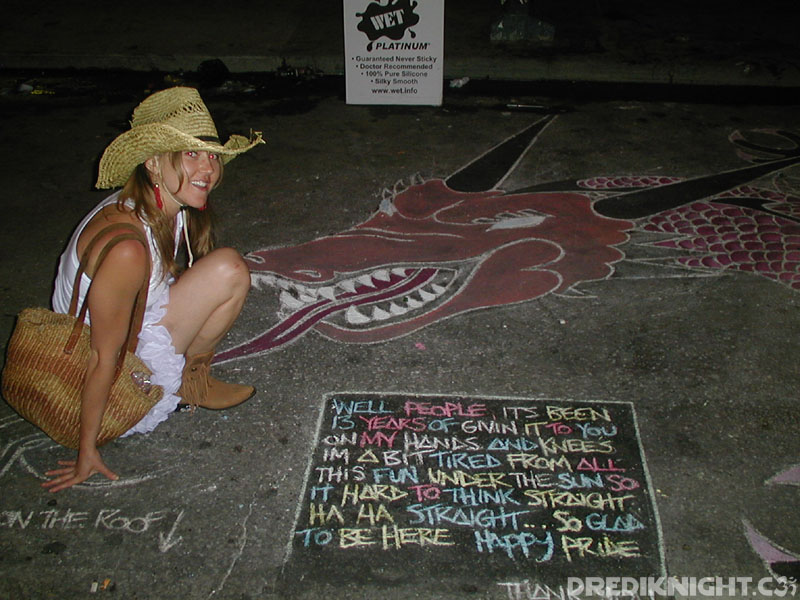 WET
PLATINUM
• Guaranteed Never Sticky
• Doctor Recommended
• 100% Pure Silicone
• Silky Smooth
www.wet.info
WELL PEOPLE, ITS BEEN
13 YEARS OF GIVIN IT TO YOU
ON MY HANDS AND KNEES.
IM A BIT TIRED FROM ALL
THIS FUN UNDER THE SUN SO
IT HARD TO THINK STRAIGHT
HA HA STRAIGHT... SO GLAD
TO BE HERE HAPPY PRIDE
ON THE ROOF
THANK
DREDIKNIGHT.C